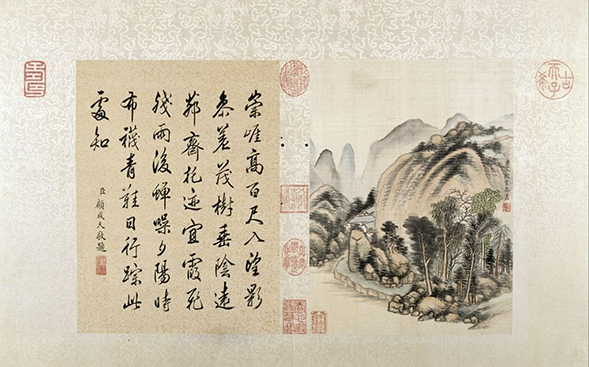 崇崖高百尺入望影
叅差茂樹垂陰遠
茆齋托迹宜霞飛
殘雨後蟬噪夕陽時
布襪青鞋日行踪此
處知
臣顧成天敬題